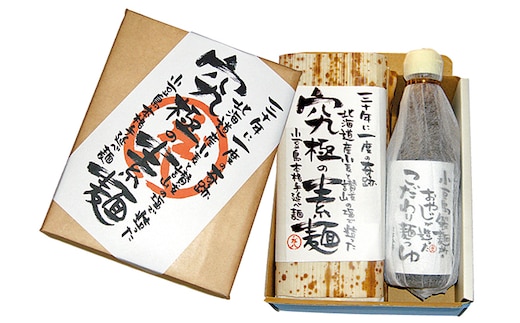 三十年に一度の奇跡
北海道産小麦と讃岐の塩で造った
究極の素麺
小豆島本格手延べ麺
三十年に一度の奇跡
北海道産小麦と讃岐の塩で造った
究極の素麺
小豆島本格手延べ麺
おやじが造った
こだわり麺つゆ